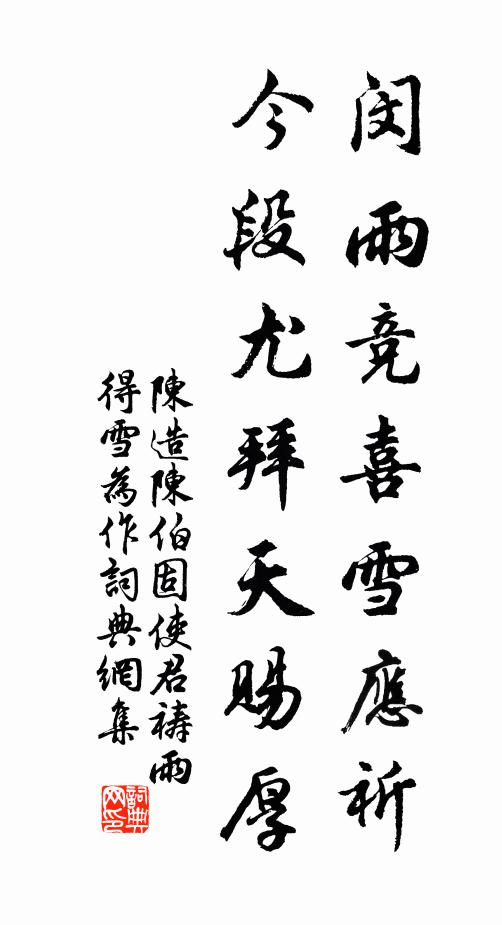 閔雨竞喜雪應祈
今段尤拜天賜厚
陳造陳伯固使君禱雨
得雪為作詞典網集
詞典
网印